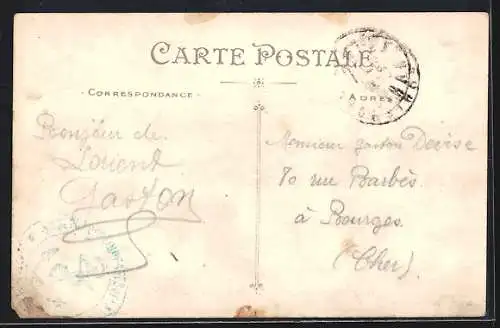 CARTE POSTALE
CORRESPONDANCE
Bonjour de
Lorient
Gaston
ADRES
Monsieur Gaston Devise
70 rue Barbès
à Bourges
(Cher)